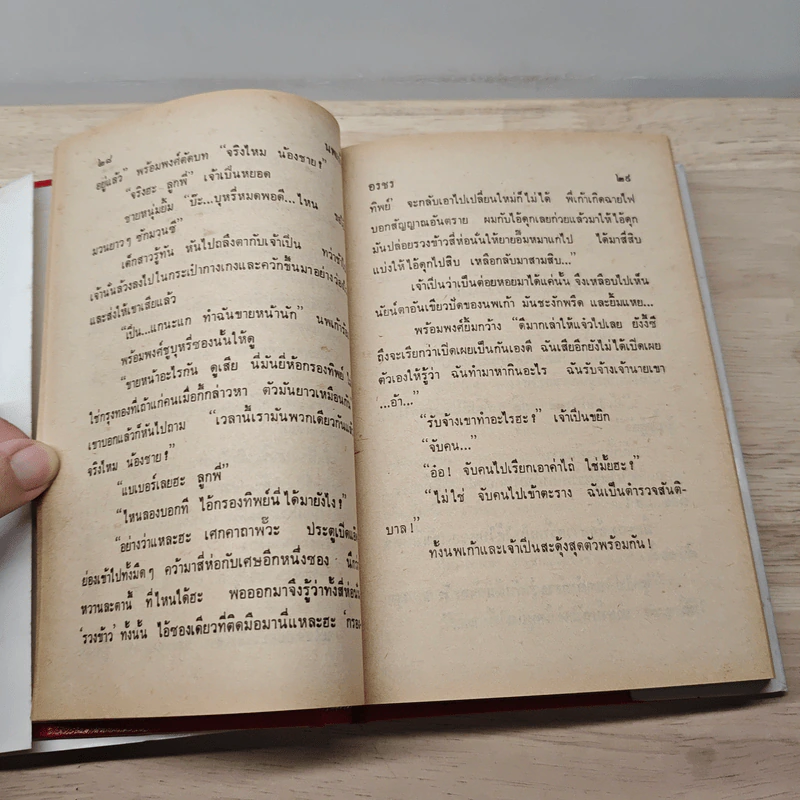 ๒๘
อยู่แล้ว” พร้อมพงศ์ตัดบท “จริงไหม น้องชาย?”
“จริงฮะ ลูกพี่” เจ้าเป็นหยอด
ชายหนุ่มยิ้ม “บ๊ะ...บุหรี่หมดพอดี...ไหน
มวนยาวๆ ซักมวนซี”
เด็กสาวรู้ทัน หันไปถลึงตากับเจ้าเป็น
เจ้านั่นล้วงลงไปในกระเป๋ากางเกงและควักขึ้นมาอย่าง
และส่งให้เขาเสียแล้ว
“เป็น...แกนะแก ทำฉันขายหน้านัก” นพเก้า
พร้อมพงศ์ชูบุหรี่ซองนั้นให้ดู
“ขายหน้าอะไรกัน ดูเสีย นี่มันยี่ห้อกรองทิพย์
ใช่กรุงทองที่เถ้าแก่คนเมื่อกี้กล่าวหา ตัวมันยาวเหมือนกัน
เขาบอกแล้วก็หันไปถาม “เวลานี้เรามันพวกเดียวกันแล้ว
จริงไหม น้องชาย?”
“แบเบอร์เลยฮะ ลูกพี่”
“ไหนลองบอกที ไอ้กรองทิพย์นี่ได้มายังไง?”
“อย่างว่าแหละฮะ เศกคาถาพ๊วะ ประตูเปิด
ย่องเข้าไปทั้งมืดๆ คว้ามาสี่ห่อกับเศษอีกหนึ่งซอง
หวานละตานี้ ที่ไหนได้ฮะ พอออกมาจึงรู้ว่าทั้งสี่ห่อ
‘รวงข้าว’ ทั้งนั้น ไอ้ซองเดียวที่ติดมือมานี่แหละฮะ ‘กรอง
อรชร ๒๙
ทิพย์’ จะกลับเอาไปเปลี่ยนใหม่ก็ไม่ได้ พี่เก้าเกิดฉายไฟ
บอกสัญญาณอันตราย ผมกับไอ้ดุกเลยก่วยแล้วมาให้ไอ้ดุก
มันปล่อยรวงข้าวสี่ห่อนั่นให้ยายอิ๊มหมาแกไป ได้มาสี่สิบ
แบ่งให้ไอ้ดุกไปสิบ เหลือกลับมาสามสิบ...”
เจ้าเป็นว่าเป็นต่อยหอยมาได้แค่นั้น จึงเหลือบไปเห็น
นัยน์ตาอันเขียวปัดของนพเก้า มันชะงักพรืด และยิ้มแหย...
พร้อมพงศ์ยิ้มกว้าง “ดีมากเล่าให้แจ๋วไปเลย ยังงี้ซี
ถึงจะเรียกว่าเปิดเผยเป็นกันเองดี ฉันเสียอีกยังไม่ได้เปิดเผย
ตัวเองให้รู้ว่า ฉันทำมาหากินอะไร ฉันรับจ้างเจ้านายเขา
...อ้า...”
“รับจ้างเขาทำอะไรฮะ?” เจ้าเป็นขยิก
“จับคน...”
“อ๋อ! จับคนไปเรียกเอาค่าไถ่ ใช่มั้ยฮะ?”
“ไม่ใช่ จับคนไปเข้าตะราง ฉันเป็นตำรวจสันติ-
บาล!”
ทั้งนพเก้าและเจ้าเป็นสะดุ้งสุดตัวพร้อมกัน!